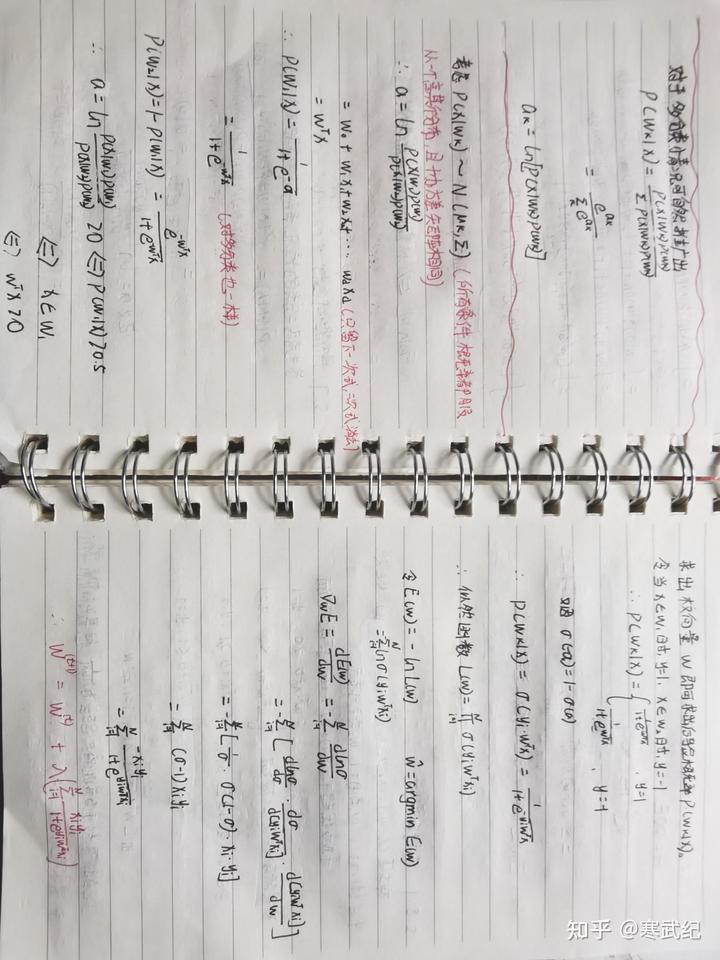 对于多分类情况可自然推广出
P(wₖ|x) = P(x|wₖ)P(wₖ) / Σ P(x|wₖ)P(wₖ)
= e^{aₖ} / Σₖ e^{aₖ}
aₖ = ln[P(x|wₖ)P(wₖ)]
考虑 P(x|wₖ) ~ N(μₖ,Σ) (所有条件概率都服
从一个高斯分布,且协方差矩阵相同)
∴ a = ln P(x|w₁)P(w₁) / P(x|w₂)P(w₂)
= w₀ + w₁x₁ + w₂x₂ + ··· w_d x_d (只留下一次式,二次式消去)
= wᵀx
∴ P(w₁|x) = 1 / 1+e^{-a}
= 1 / 1+e^{-wᵀx} (对多分类也一样)
P(w₂|x) = 1-P(w₁|x) = e^{-wᵀx} / 1+e^{-wᵀx}
∴ a = ln P(x|w₁)P(w₁) / P(x|w₂)P(w₂) > 0 <=> P(w₁|x) > 0.5
<=> x∈w₁
<=> wᵀx > 0
求出权向量 w 即可求出后验概率 P(wₖ|x)。
令当 x∈w₁时, y=1, x∈w₂时, y=-1
∴ P(wₖ|x) = { 1 / 1+e^{-wᵀx} , y=1
1 / 1+e^{wᵀx} , y=-1
又因 σ(-a) = 1-σ(a)
∴ P(wₖ|x) = σ(yᵢ·wᵀx) = 1 / 1+e^{-yᵢwᵀx}
∴ 似然函数 L(w) = ∏_{i=1}^{N} σ(yᵢwᵀxᵢ)
令 E(w) = - ln L(w) ŵ = argmin E(w)
= -Σ_{i=1}^{N} ln σ(yᵢwᵀxᵢ)
∇_w E = dE(w) / dw = -Σ_{i=1}^{N} dlnσ / dw
= -Σ_{i=1}^{N} [ dlnσ / dσ · dσ / d[yᵢwᵀxᵢ] · d[yᵢwᵀxᵢ] / dw ]
= -Σ_{i=1}^{N} [ 1/σ · σ(1-σ) · xᵢ·yᵢ ]
= Σ_{i=1}^{N} (σ-1) xᵢyᵢ
= Σ_{i=1}^{N} -xᵢyᵢ / 1+e^{yᵢwᵀxᵢ}
∴ w^{(t+1)} = w^{(t)} + λ( Σ_{i=1}^{N} xᵢyᵢ / 1+e^{yᵢwᵀxᵢ} )
知乎 @寒武纪